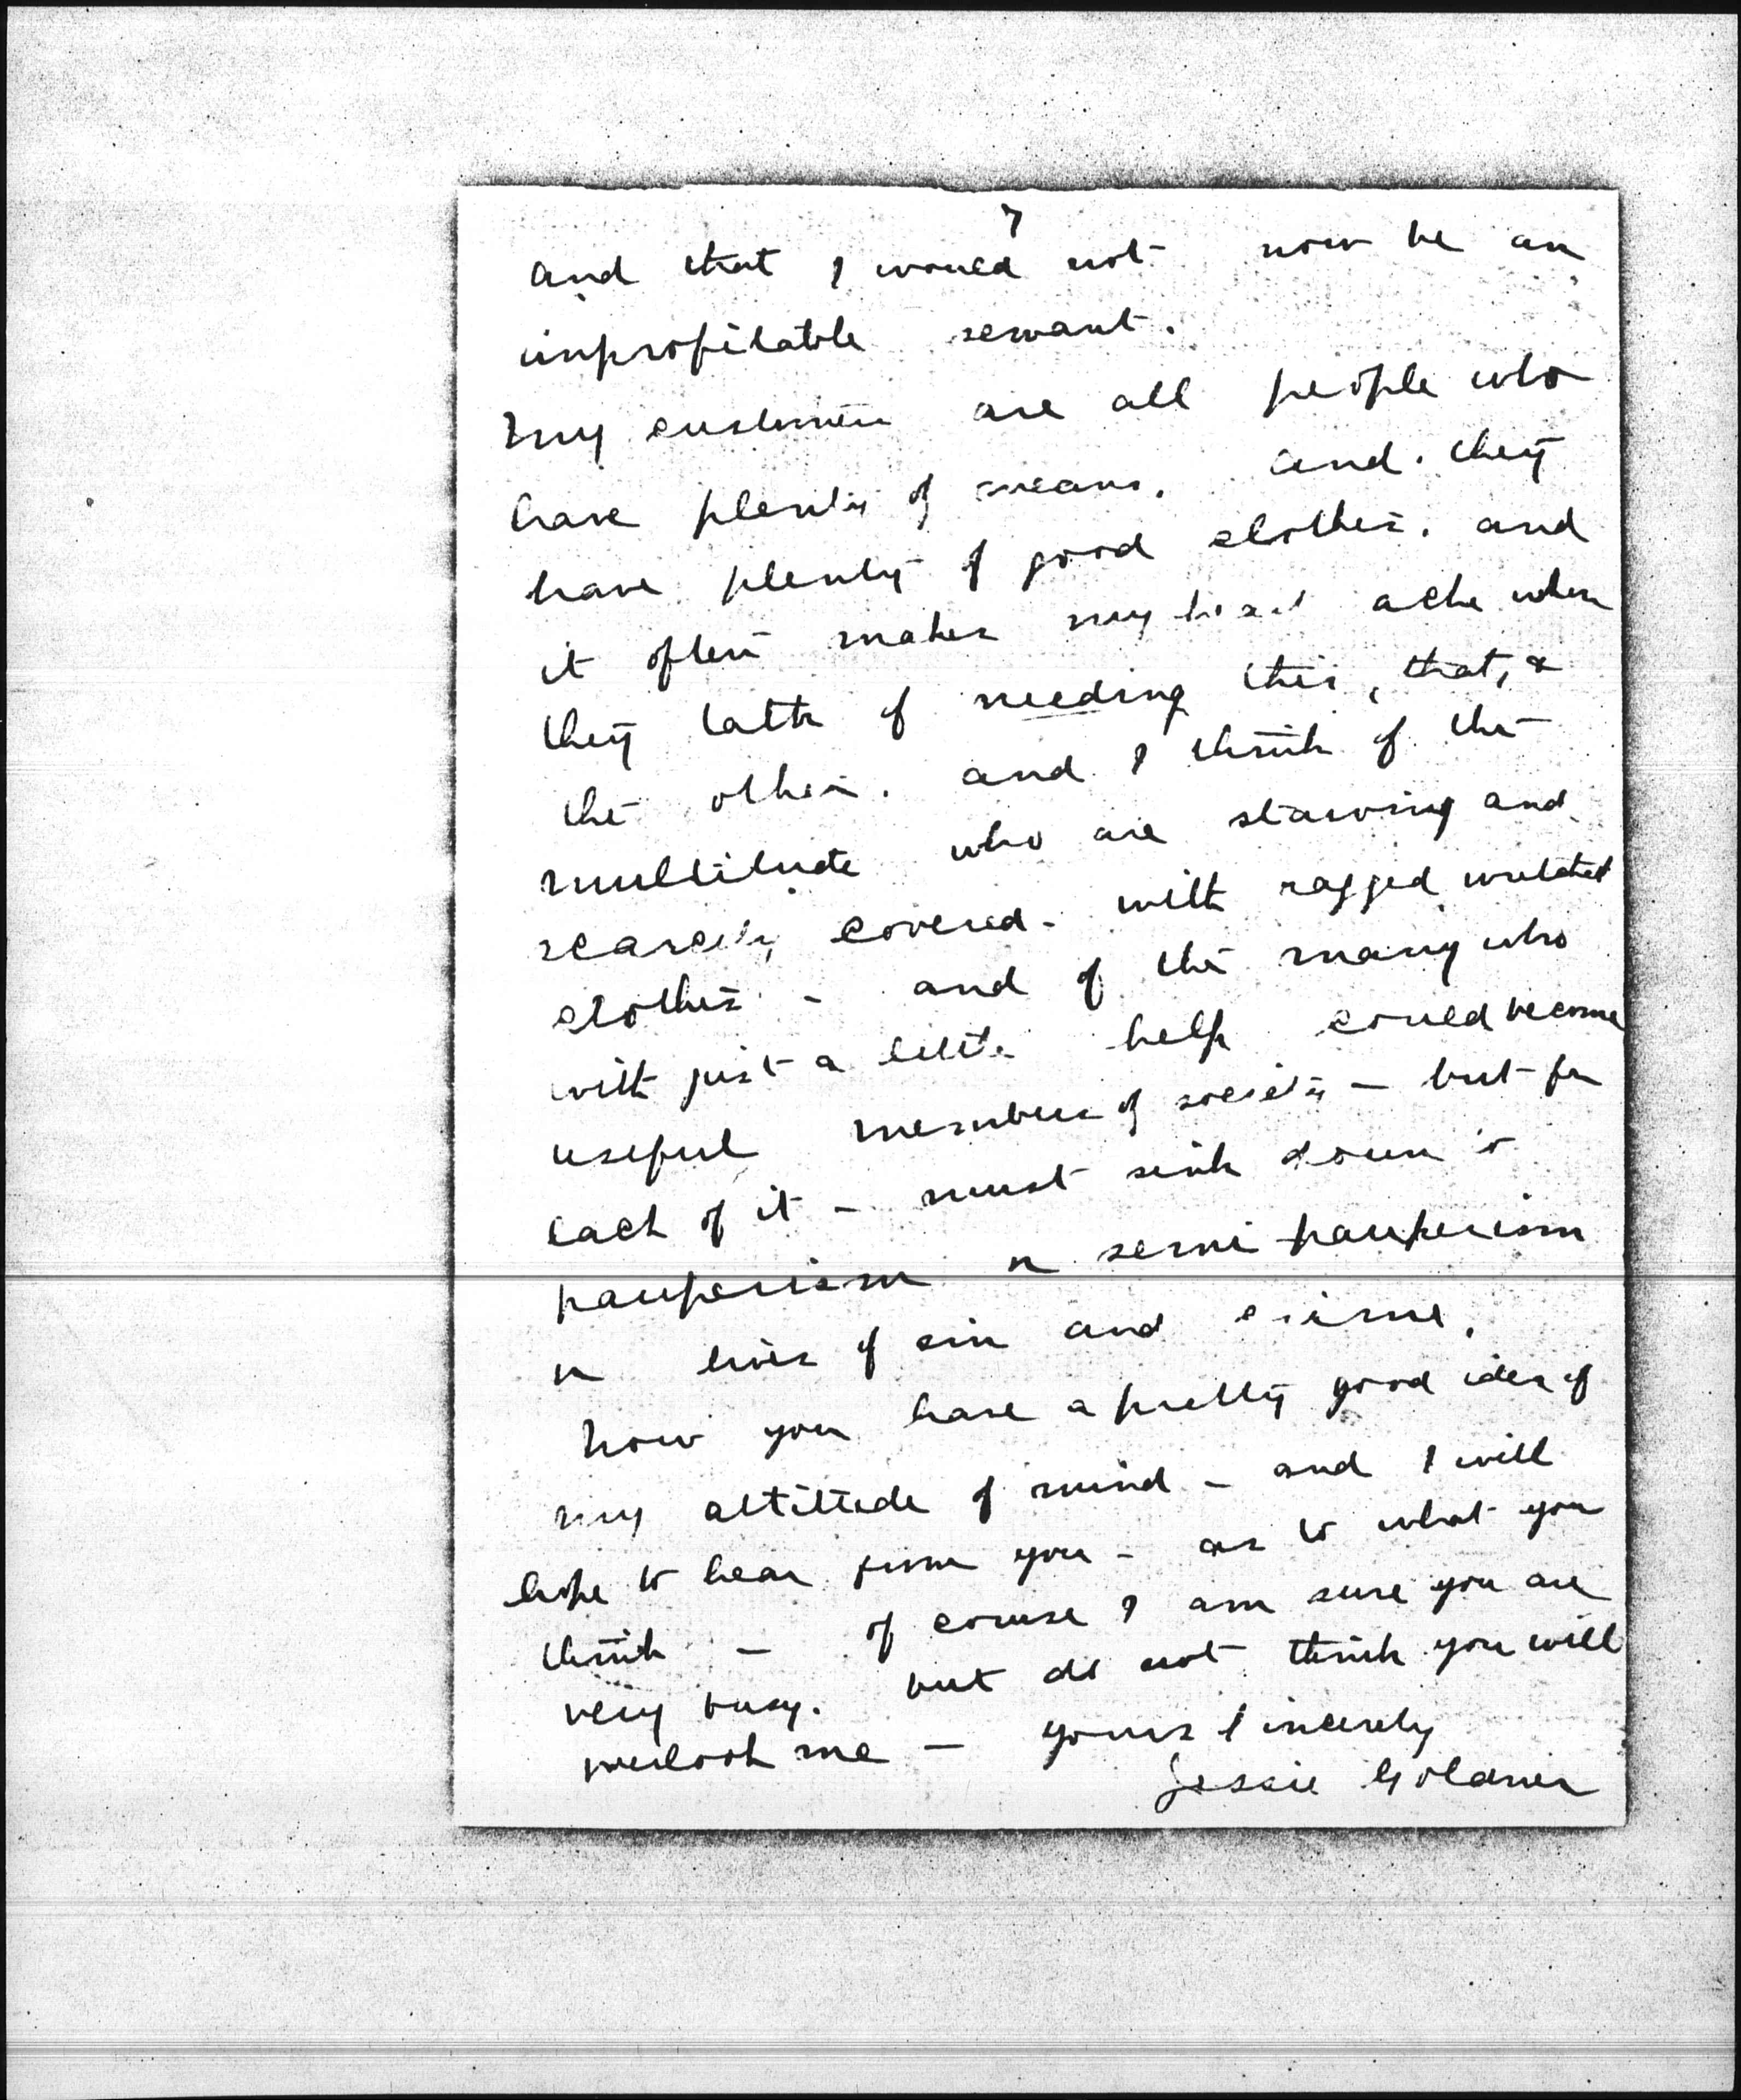 7
and that I would not now be an
unprofitable servant.
My customers are all people who
have plenty of means. and they
have plenty of good clothes. and
it often makes my heart ache when
they talk of needing this, that, &
the other. and I think of the
multitude who are starving and
scarcely covered - with ragged wretched
clothes - and of the many who
with just a little help could become
useful members of society - but for
lack of it - must sink down to
pauperism or semi pauperism
or lives of sin and crime.
Now you have a pretty good idea of
my attitude of mind - and I will
hope to hear from you - as to what you
think - of course I am sure you are
very busy. but do not think you will
overlook me - yours sincerely
Jessie Goldner